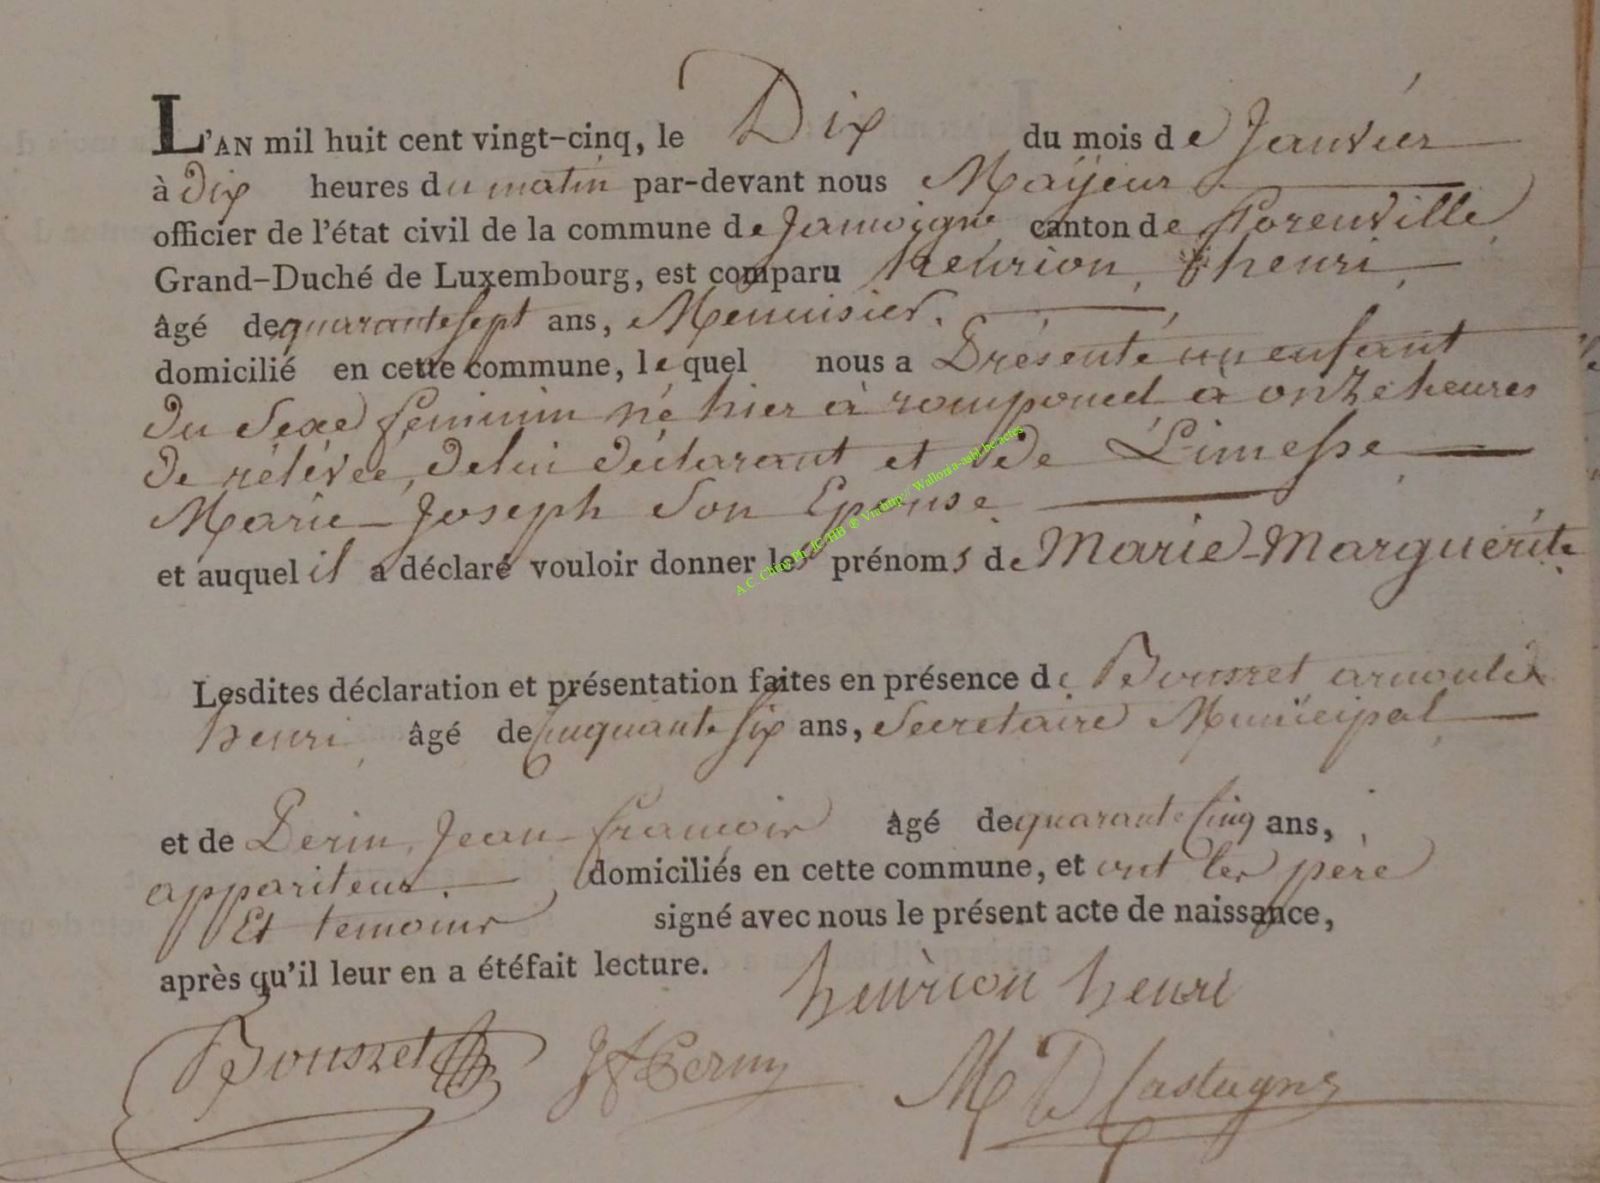 L'AN mil huit cent vingt-cinq, le Dix du mois de Janvier
à dix heures du matin par-devant nous Mayeur
officier de l'état civil de la commune de Jamoigne canton de florenville
Grand-Duché de Luxembourg, est comparu henrion, henri,
âgé de quarante sept ans, Menuisier.
domicilié en cette commune, lequel nous a Présenté un enfant
du Sexe feminin né hier à romponcel à onze heures
de rélévée, de lui déclarant et de Limesse
Marie-Joseph Son Epouse
et auquel il a déclaré vouloir donner les prénoms de Marie-Marguérite
Lesdites déclaration et présentation faites en présence de Bousret arnould
henri âgé de Cinquante Six ans, Secretaire Municipal
et de Perin, Jean-francois âgé de quarante Cinq ans,
appariteur. domiciliés en cette commune, et ont les père
Et temoins signé avec nous le présent acte de naissance,
après qu'il leur en a étéfait lecture.
henrion henri
Bousret
A.C. Chiny Ph. JC HB ® Via http// Wallonia-asbl.be.actes